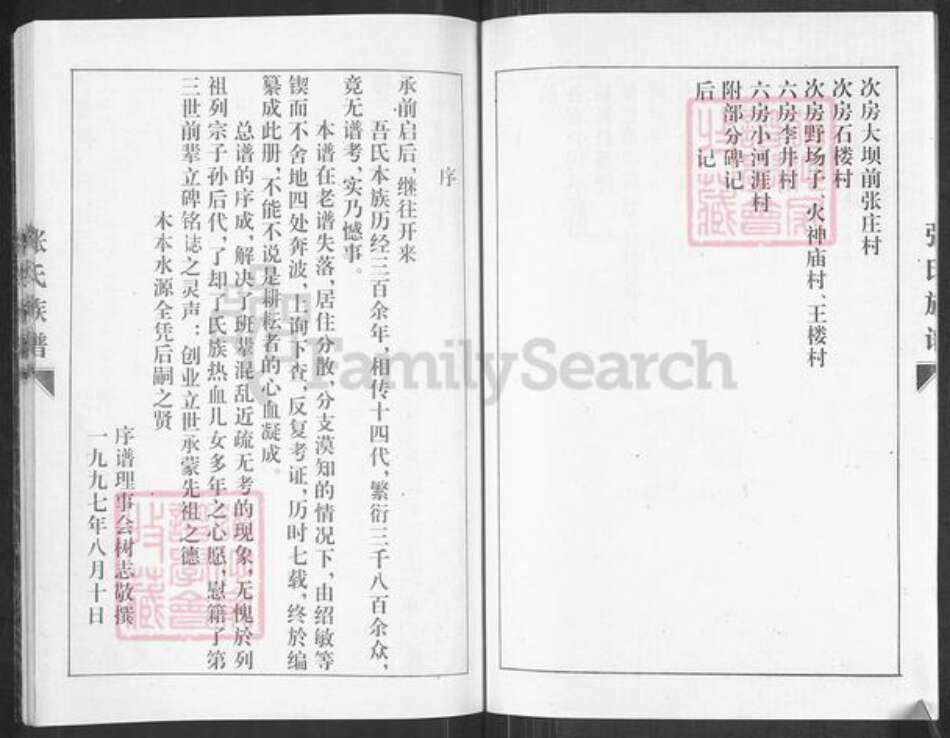 张氏族谱
次房大坝前张庄村
次房石楼村
次房野场子、火神庙村、王楼村
六房李井村
六房小河涯村
附部分碑记
后记
序
承前启后，继往开来
吾氏本族历经三百余年，相传十四代，繁衍三千八百余众，
竟无谱考，实乃憾事。
本谱在老谱失落，居住分散，分支漠知的情况下，由绍敏等
锲而不舍地四处奔波，上询下查，反复考证，历时七载，终於编
纂成此册，不能不说是耕耘者的心血凝成。
总谱的序成，解决了班辈混乱近疏无考的现象，无愧於列
祖列宗子孙后代，了却了氏族热血儿女多年之心愿，慰籍了第
三世前辈立碑铭誌之灵声：创业立世承蒙先祖之德
木本水源全凭后嗣之贤
序谱理事会树志敬撰
一九九七年八月十日
张氏族谱
FamilySearch
收藏
收藏